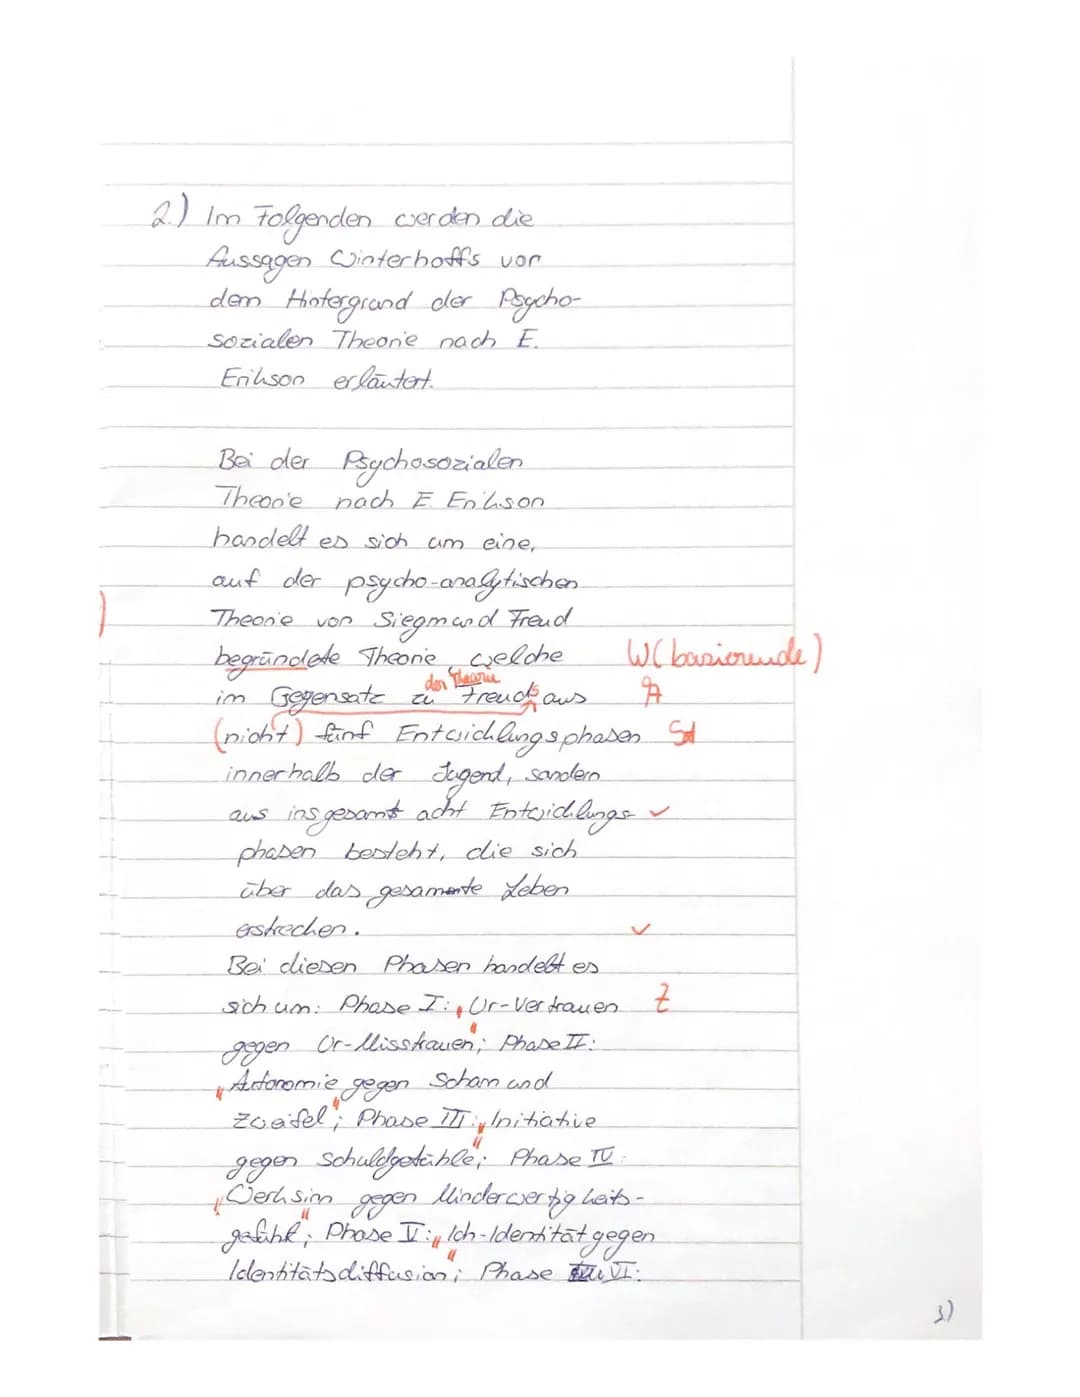 2.) Im Folgenden werden die
Aussagen Winterhoffs vor
dem Hintergrund der Psycho-
sozialen Theorie nach E.
Erikson erläutert.
Bei der Psychosozialen
Theorie nach E. Erikson
handelt es sich um eine,
auf der psycho-analytischen
Theorie von Siegmund Freud
begründete Theorie, welche W(basierende)
der Theorie
im Gegensatz zu Freuds aus A
(nicht) fünf Entwicklungsphasen
innerhalb der Jugend, sondern
aus insgesamt acht Entwicklungs- ✓
phasen besteht, die sich
über das gesamte Leben
erstrecken. ✓
Bei diesen Phasen handelt es
sich um: Phase I: „Ur-Vertrauen Z
gegen Ur-Misstrauen"; Phase II:
„Autonomie gegen Scham und
Zweifel"; Phase III: „Initiative
gegen Schuldgefühle"; Phase IV:
„Werksinn gegen Minderwertigkeits-
gefühl"; Phase V: „Ich-Identität gegen
Identitätsdiffusion"; Phase VI:
3)